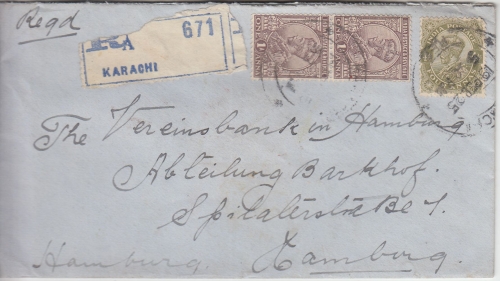 Regd
R A 671
KARACHI
The Vereinsbank in Hamburg
Abteilung Barkhof.
Spitalerstraße 1.
Hamburg. Hamburg.